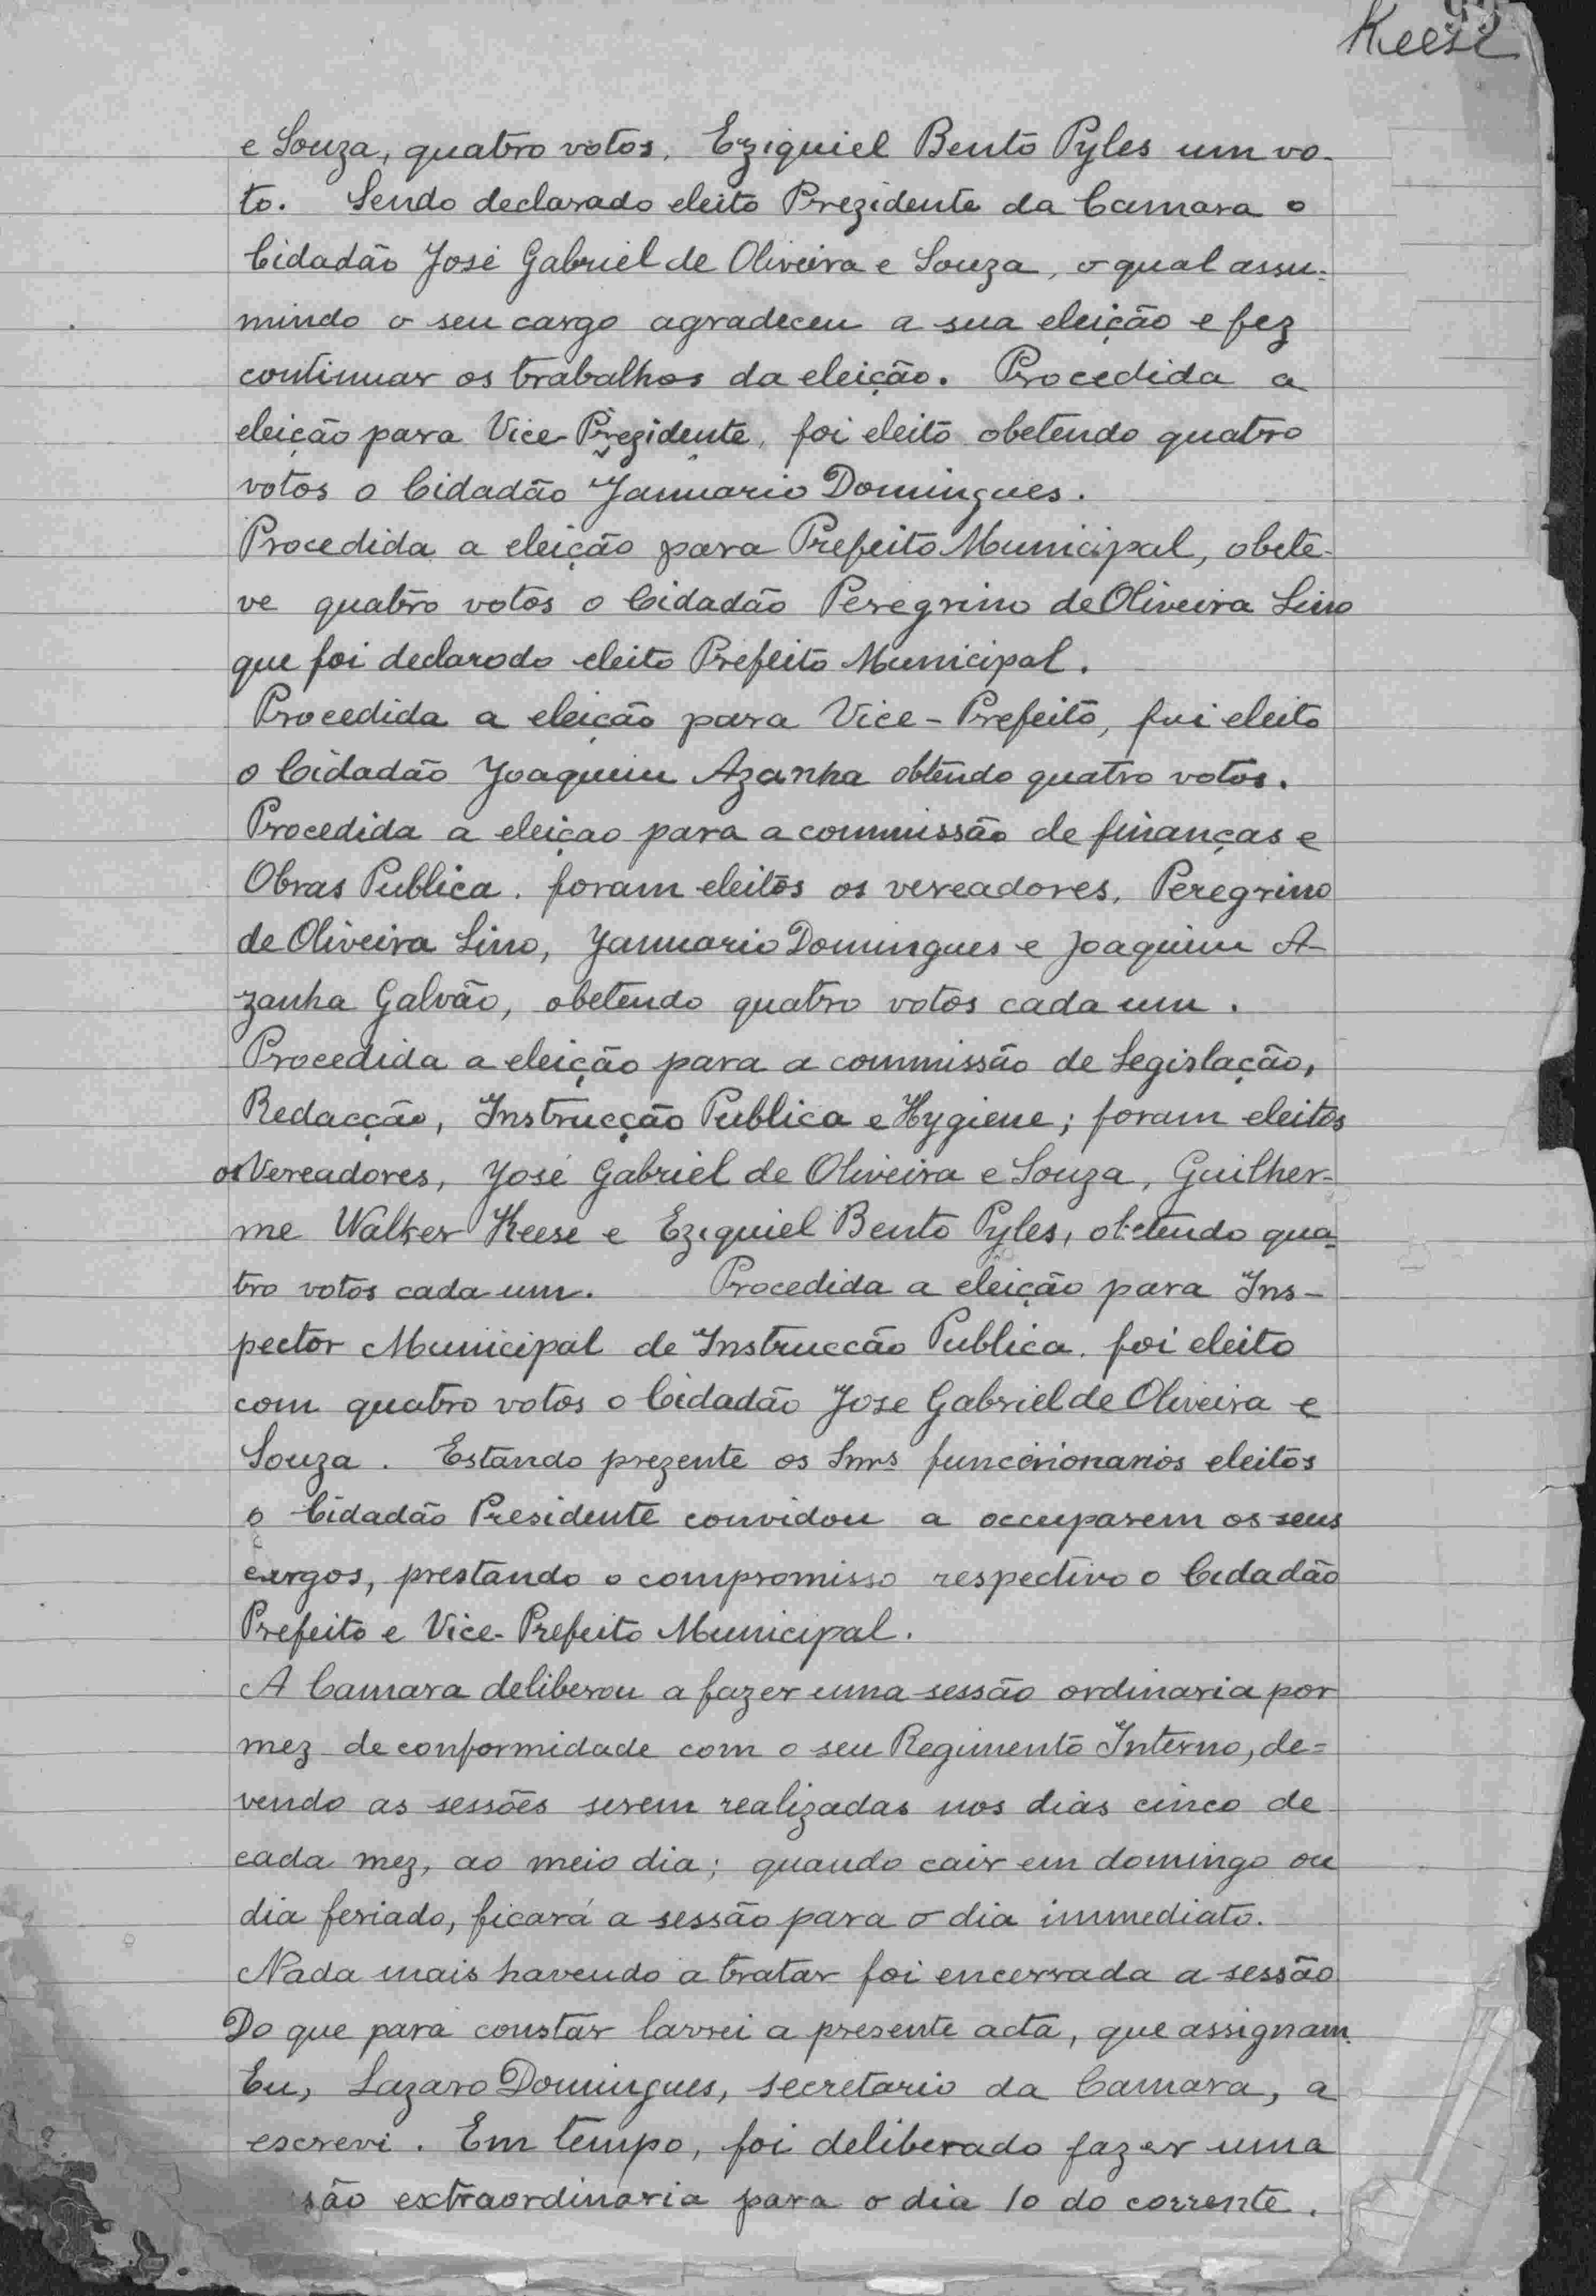 Keese
e Souza, quatro votos, Eziquiel Bento Pyles um vo-
to. Sendo declarado eleito Prezidente da Camara o
Cidadão José Gabriel de Oliveira e Souza, o qual assu-
mindo o seu cargo agradeceu a sua eleição e fez
continuar os trabalhos da eleição. Procedida a
eleição para Vice-Prezidente, foi eleito obetendo quatro
votos o Cidadão Januario Domingues.
Procedida a eleição para Prefeito Municipal, obete-
ve quatro votos o Cidadão Peregrino de Oliveira Lino
que foi declarodo eleito Prefeito Municipal.
Procedida a eleição para Vice-Prefeito, foi eleito
o Cidadão Joaquim Azanha obtendo quatro votos.
Procedida a eleiçao para a commissão de finanças e
Obras Publica. foram eleitos os vereadores, Peregrino
de Oliveira Lino, Januario Domingues e Joaquim A-
zanha Galvão, obetendo quatro votos cada um.
Procedida a eleição para a commissão de Legislação,
Redacção, Instrucção Publica e Hygiene; foram eleitos
os Vereadores, José Gabriel de Oliveira e Souza, Guilher-
me Walker Keese e Eziquiel Bento Pyles, obetendo qua-
tro votos cada um. Procedida a eleição para Ins-
pector Municipal de Instrucção Publica. foi eleito
com quatro votos o Cidadão Jose Gabriel de Oliveira e
Souza. Estando prezente os Snrs funccionarios eleitos
o Cidadão Presidente convidou a occuparem os seus
cargos, prestando o compromisso respectivo o Cidadão
Prefeito e Vice-Prefeito Municipal.
A Camara deliberou a fazer uma sessão ordinaria por
mez de conformidade com o seu Regimento Interno, de=
vendo as sessões serem realizadas nos dias cinco de
cada mez, ao meio dia; quando cair em domingo ou
dia feriado, ficará a sessão para o dia immediato.
Nada mais havendo a tratar foi encerrada a sessão
Do que para constar lavrei a presente acta, que assignam.
Eu, Lazaro Domingues, secretario da Camara, a
escrevi. Em tempo, foi deliberado fazer uma
são extraordinaria para o dia 10 do corrente.